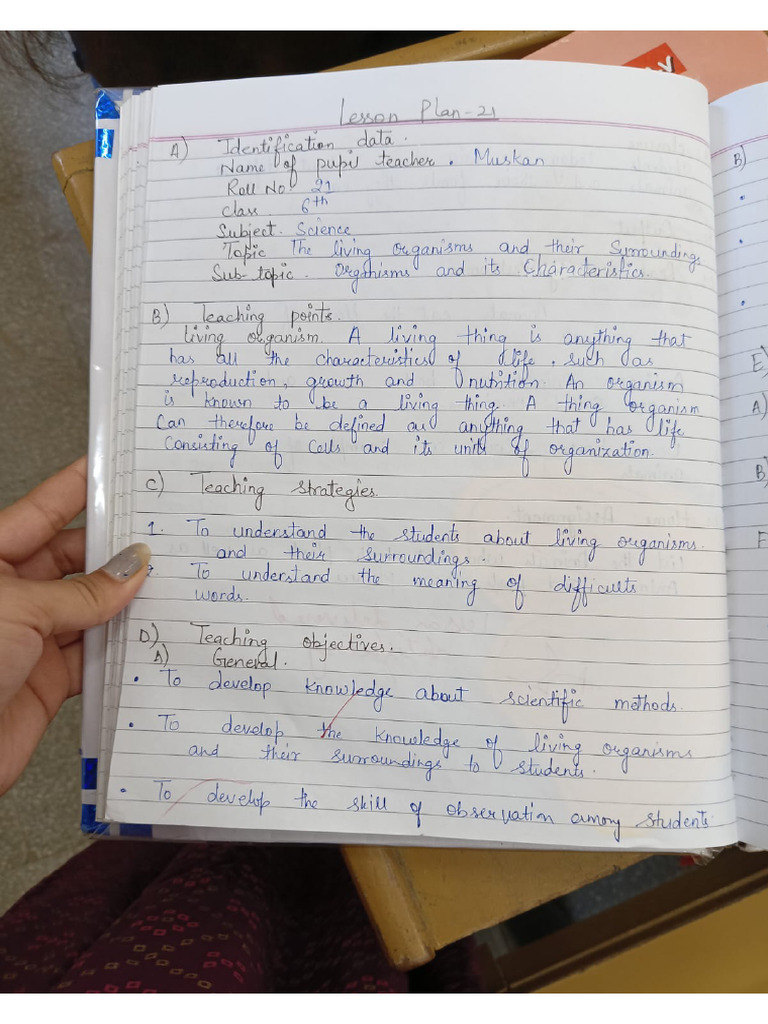 Lesson Plan-21
A) Identification data.
Name of pupil teacher. Muskan
Roll No. 21
Class. 6th
Subject. Science
Topic The living organisms and their Surroundings
Sub-topic. Organisms and its Characteristics.
B) Teaching points.
living organism. A living thing is anything that
has all the characteristics of life, such as
reproduction, growth and nutrition. An organism
is known to be a living thing. A thing organism
Can therefore be defined as anything that has life
Consisting of Cells and its units of organization.
C) Teaching strategies.
1. To understand the students about living organisms.
and their surroundings.
2. To understand the meaning of difficults
words.
D) Teaching objectives.
A) General.
• To develop knowledge about scientific methods.
• To develop the knowledge of living organisms
and their surroundings to students.
• To develop the skill of observation among students
B)
E)
A)
B)
F